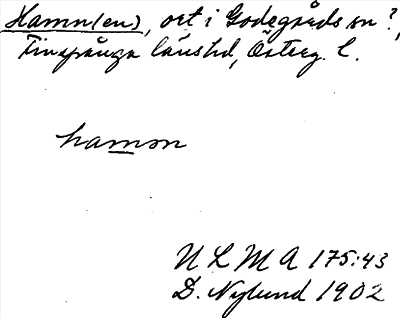 Hamn(en), ort i Godegårds sn?,
Finspånga länshd, Österg. l.
hamɷn
U L M A 175:43
D. Nylund 1902